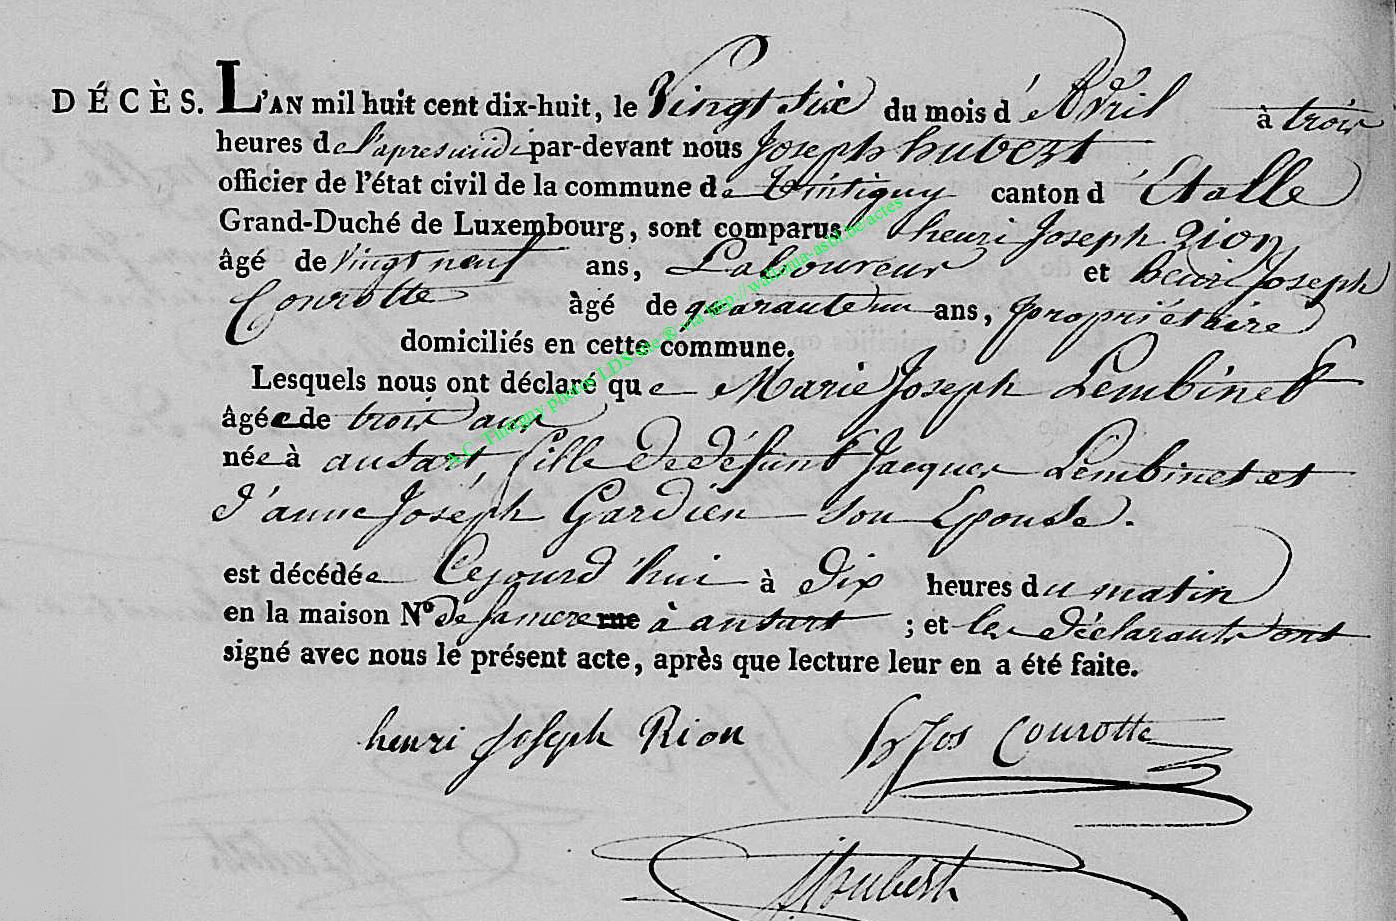 DÉCÈS. L'AN mil huit cent dix-huit, le Vingt six du mois d' Avril à trois
heures de l'apresmidi par-devant nous Joseph hubert
officier de l'état civil de la commune de tintigny canton d' Étalle
Grand-Duché de Luxembourg, sont comparus henri Joseph Rion
âgé de vingt neuf ans, Laboureur et henri Joseph
Courotte âgé de quarante un ans, propriétaire
domiciliés en cette commune.
Lesquels nous ont déclaré que Marie Joseph Lembinet
âgée de trois ans
née à ansart, fille de défunt Jacques Lembinet et
d'anne Joseph Gardien son Epouse.
est décédée Cejourd'hui à dix heures du matin
en la maison N° de sa mere rue à ansart ; et les déclarants ont
signé avec nous le présent acte, après que lecture leur en a été faite.
henri Joseph Rion h Jos Courotte
J Houbert
A.C. Tintigny photos LDS site ® via http://wallonia-asbl.be/actes